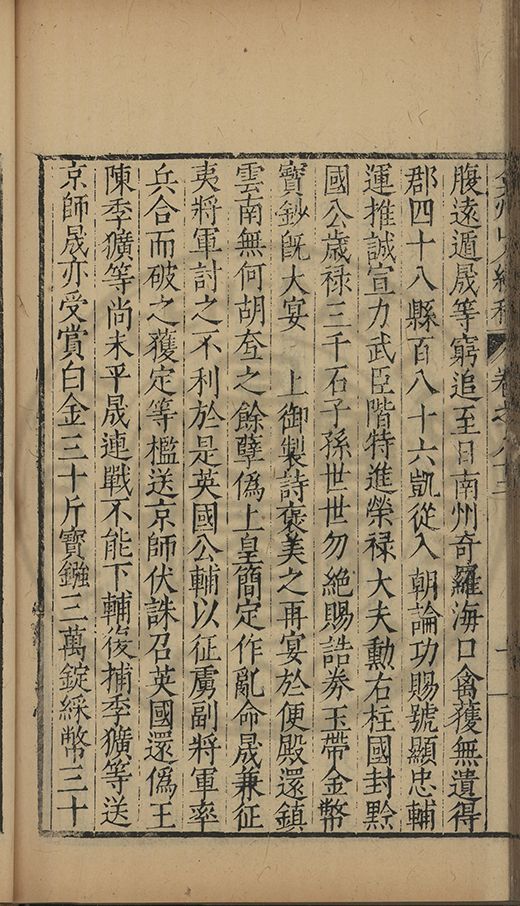 腹遠遁晟等窮追至日南州奇羅海口禽獲無遺得
郡四十八縣百八十六凱從入 朝論功賜號顯忠輔
運推誠宣力武臣階特進榮祿大夫勳右柱國封黔
國公歲禄三千石子孫世世勿絶賜誥券玉帶金幣
寶鈔旣大宴 上御製詩褒美之再宴於便殿還鎮
雲南無何胡𡗨之餘孽僞上皇簡定作亂命晟兼征
夷將軍討之不利於是英國公輔以征虜副將軍率
兵合而破之獲定等檻送京師伏誅召英國還僞王
陳季獷等尚未平晟連戰不能下輔復捕季獷等送
京師晟亦受賞白金三十斤寶鏹三萬錠綵幣三十